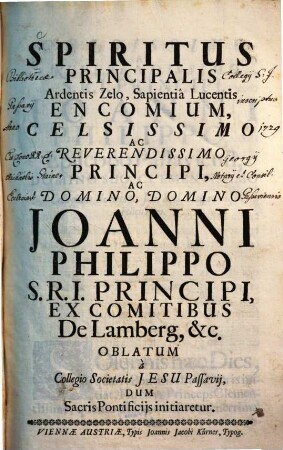 SPIRITUS
PRINCIPALIS
Bibliothecæ Collegij S. J.
Ardentis Zelo, Sapientiâ Lucentis
Passavij inscriptus
ENCOMIUM,
Anno 1729
CELSISSIMO
AC
REVERENDISSIMO
Georgij
PRINCIPI,
Notarij et Consil.
AC
DOMINO, DOMINO
JOANNI
PHILIPPO
S.R.I. PRINCIPI,
EX COMITIBUS
De Lamberg, &c.
OBLATUM
à
Collegio Societatis JESU Passavij,
DUM
Sacris Pontificijs initiaretur.
VIENNÆ AUSTRIÆ, Typis Joannis Jacobi Kürner, Typog.